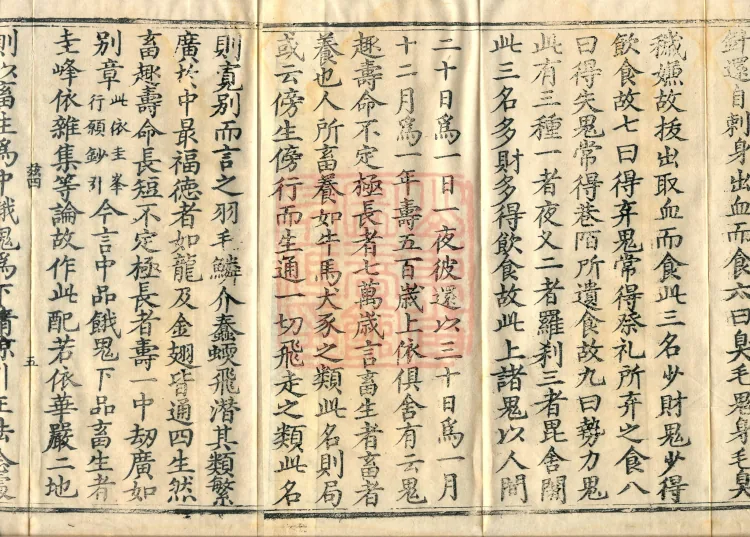 針還自刺身出血而食六曰臭毛鬼身毛臭
穢嫌故拔出取血而食此三名少財鬼少得
飲食故七曰得弃鬼常得祭礼所弃之食八
曰得失鬼常得巷陌所遺食故九曰勢力鬼
此有三種一者夜叉二者羅刹三者毘舍闍
此三名多財多得飲食故此上諸鬼以人間
二十日爲一日一夜彼還以三十日爲一月
十二月爲一年壽五百歲上依俱舍有云鬼
趣壽命不定極長者七萬歲言畜生者畜者
養也人所畜養如牛馬犬豕之類此名則局
或云傍生傍行而生通一切飛走之類此名
則寬別而言之羽毛鱗介蠢蝡飛潛其類繁
廣於中最福德者如龍及金翅皆通四生然
畜趣壽命長短不定極長者壽一中劫廣如
別章此依圭峯行願鈔引今言中品餓鬼下品畜生者
圭峰依雜集等論故作此配若依華嚴二地
茲四
五
則以畜生爲中餓鬼爲下